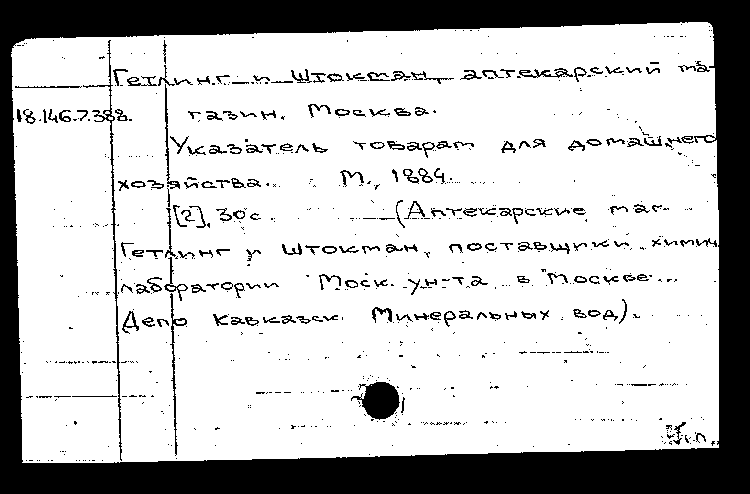 Гетлинг и Штокман, аптекарский ма-
18.146.7.388. газин. Москва.
Указатель товарам для домашнего
хозяйства. М., 1884.
[2], 30 с. (Аптекарские маг.
Гетлинг и Штокман, поставщики химич.
лаборатории Моск. ун-та в Москве...
Депо Кавказск. Минеральных вод).